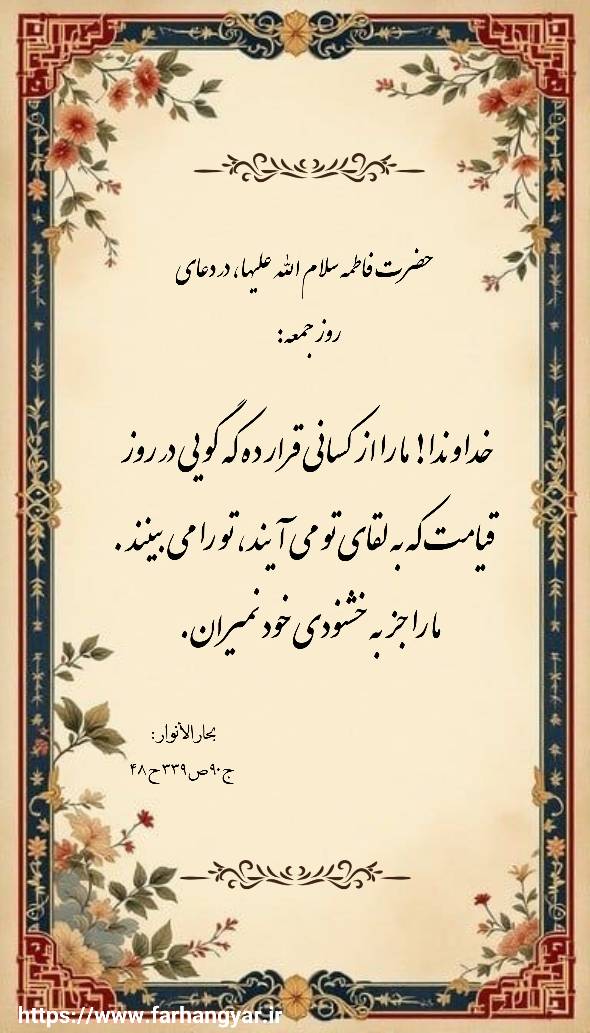 حضرت فاطمه سلام الله علیها، در دعای
روز جمعه:
خداوندا! ما را از کسانی قرار ده که گویی در روز
قیامت که به لقای تو می آیند، تو را می بینند.
ما را جز به خشنودی خود نمیران.
بحارالأنوار:
ج۹۰ص۳۳۹ح۴۸
https://www.farhangyar.ir